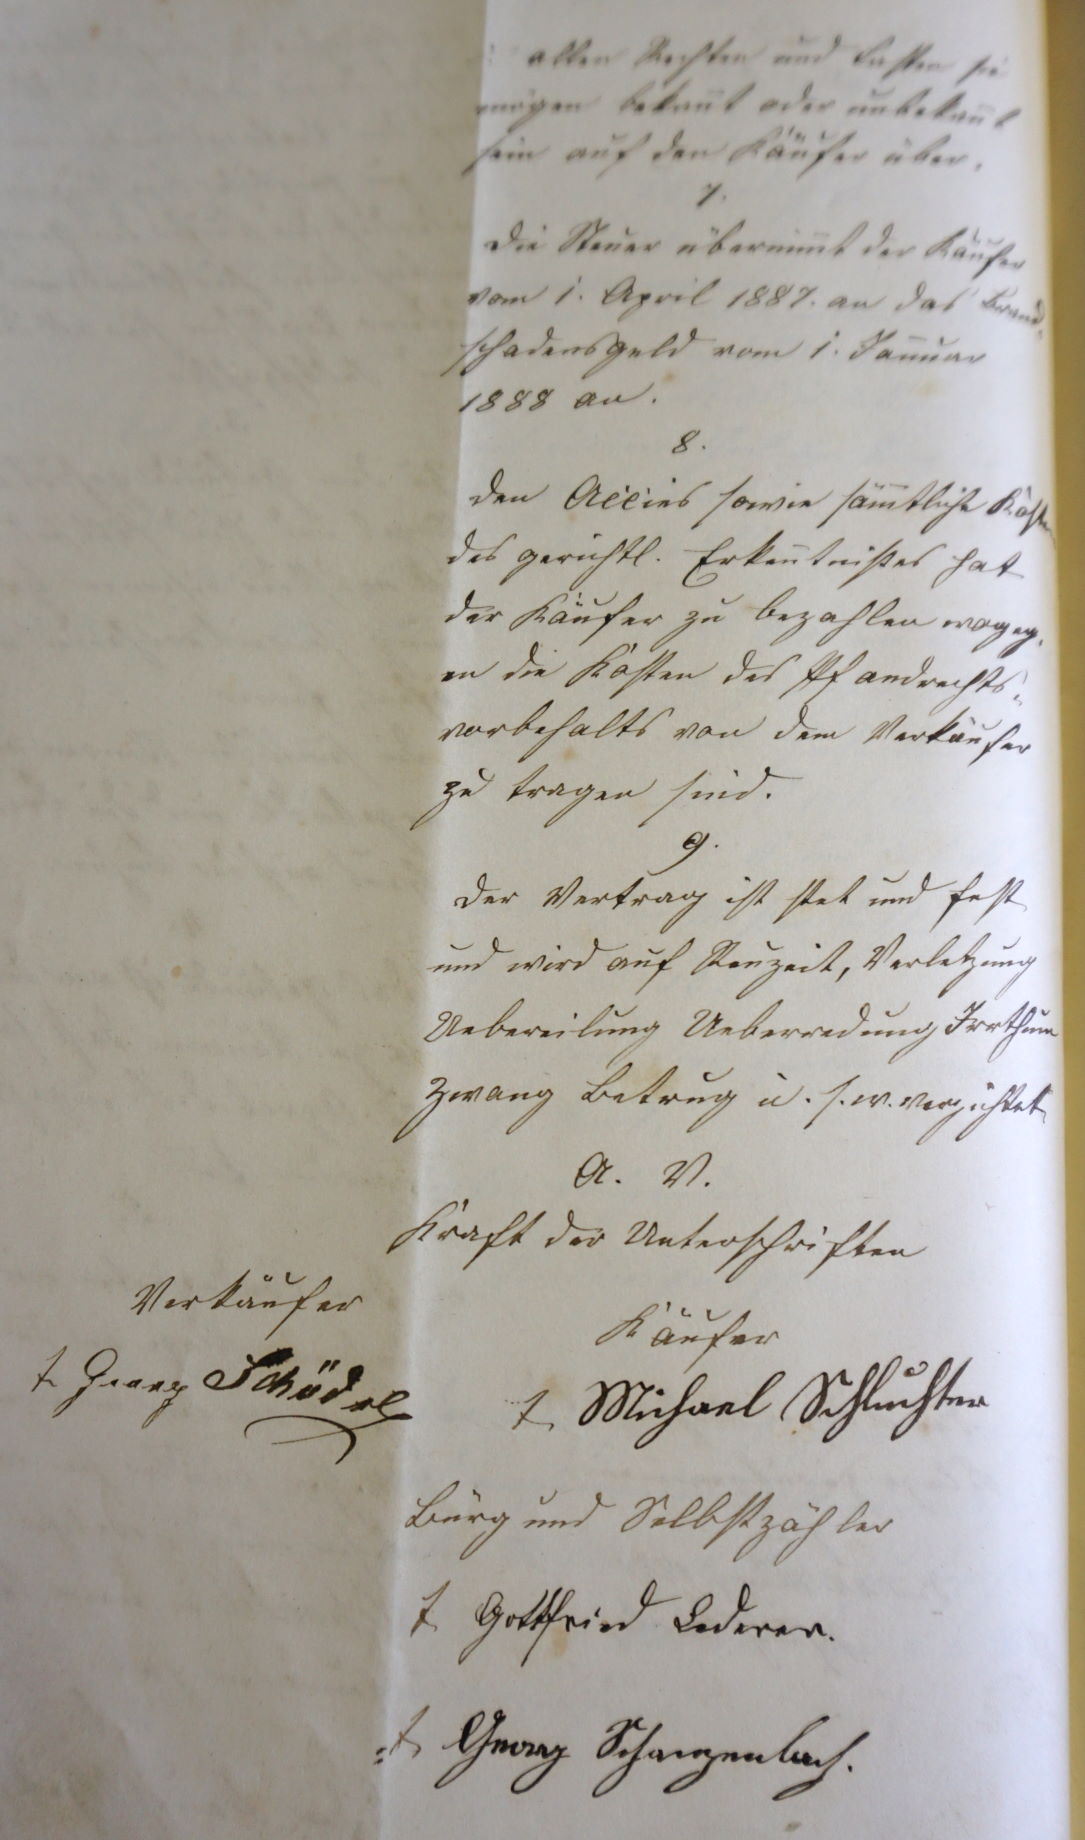 allen Rechten und Lasten sie
mögen bekannt oder unbekannt
sein auf den Käufer über.
7.
Die Steuer übernimmt der Käufer
vom 1. April 1887. an das Brand-
schadensgeld vom 1. Januar
1888 an.
8.
Den Accies sowie sämmtliche Kosten
des gerichtl. Erkenntnißes hat
der Käufer zu bezahlen wogeg-
en die Kosten des Pfandrechts-
vorbehalts von dem Verkäufer
zu tragen sind.
9.
Der Vertrag ist stet und fest
und wird auf Reuzeit, Verletzung
Uebereilung Ueberredung Irrthum
Zwang Betrug u. s. w. verzichtet
A. V.
Kraft der Unterschriften
Verkäufer
t Georg Schödel
Käufer
t Michael Schluchter
Bürg und Selbstzähler
t Gottfried Lederer.
t Georg Schanzenbach.